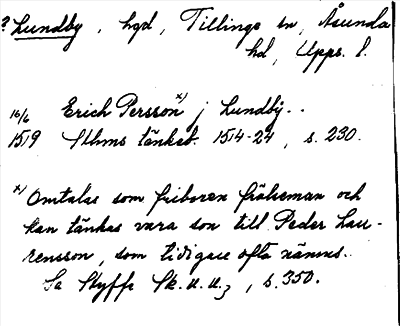 ? Lundby, hgd, Tillinge sn, Åsunda
hd, Upps. l.
16/6 Erich Persson x) j Lundby..
1519 Sthms tänkeb. 1514-24, s. 230.
x) Omtalas som friboren frälseman och
kan tänkas vara son till Peder Lau-
rensson, som tidigare ofta nämns.
Se Styffe Sk. u. u.3, s. 350.